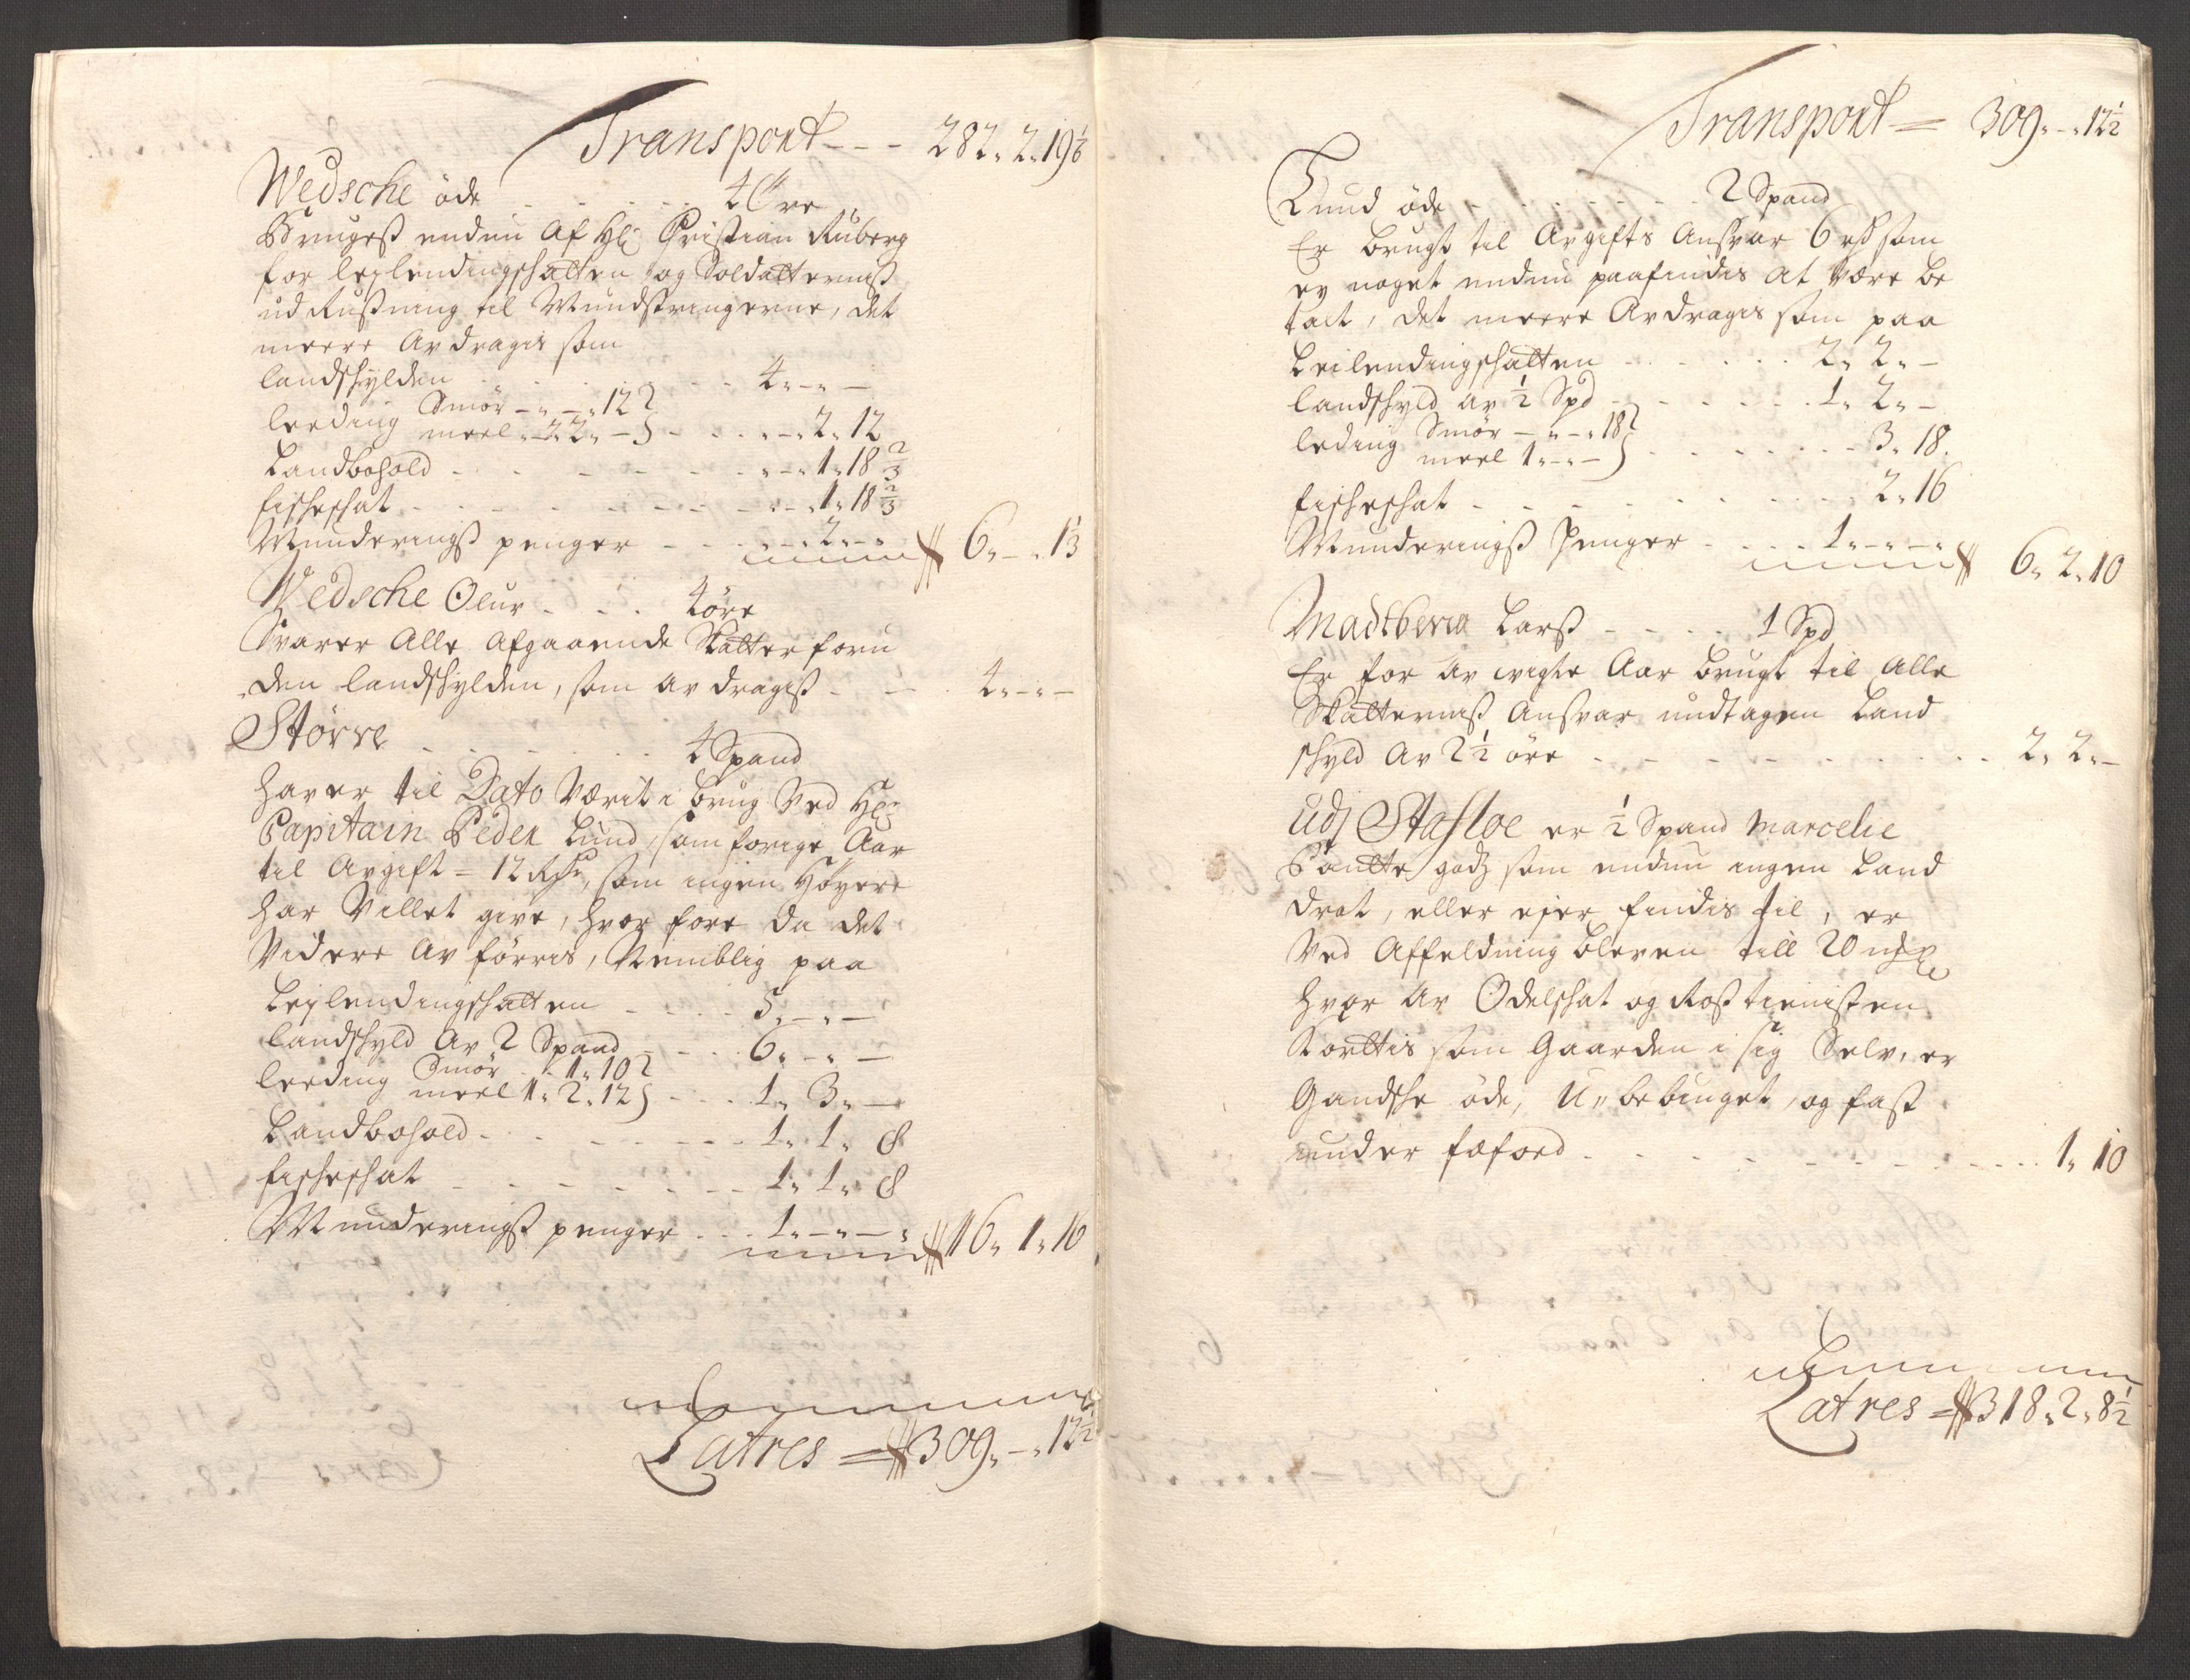 Transport - - - 282. 2. 19 1/6
Wedsche öde - - - - 4 Øre
Brugess endnu Af Hr: Christian Ruberg
for leylendingschatten og Soldatterniss
udRustning til Mundstringerne, det
meere Avdragis som
landschylden - - - - 4. - . -
leeding Smör - . - . 12 }
meel . - 2 2. - } - - - . - . 2. 12
Landbohold - - - - - - - . - . 1. 18 2/3
fischeschat - - - - - - - . - . 1. 18 2/3
Munderingss penger - - - . - . 2. - . 6. - . 1 1/3
Wedsche Oluf - - - 4 öre
Svarer Alle Afgaaende Skatter foru
den landschylden, som avdragiss - - - 4. - . -
Större - - - - - 4 Spand
haver til Dato Værit i brug Ved Hr:
Capitain Peder Lund, som forige Aar
til Avgift = 12 Rdr, som ingen Höyere
har Villet give, hvor fore da det
Videre Av förris, Nemblig paa
Leylendingschatten - - - - 5. - . -
landschyld Av 2 Spand - - - 6. - . -
leeding Smör - 1. 10 }
meel 1. 2. 12 } - - - 1. 3. -
Landbohold - - - - - - 1. 1. 8
fischeschat - - - - - - 1. 1. 8
Munderingss penger - - - 1. - . - . 16. 1. 16
Latres = 309. - . 12 1/2
Transport = 309. - . 12 1/2
Lund öde - - - - - - 2 Spand
Er brugt til Avgifts Ansvar 6 rd som
ey noget endnu paafindis at være be
talt, det meere Avdragis som paa
Leilendingschatten - - - - - 2. 2. -
landschyld av 1/2 Spd - - - - - 1. 2. -
leding Smör - . - . 18 }
meel 1. - . - } - - - - - - 3. 18.
fischeschat - - - - - - - 2. 16
Munderingss Penger - - - - 1. - . - . 6. 2. 10
Madtberra Larss - - - - 1 Spd
Er for av vigte Aar brugt til Alle
Skatterniss Ansvar undtagen Land
schyld av 2 1/2 öre - - - - - - - 2. 2. -
udj Stafloe er 1/2 Spand Marcelie
Pantte godz som endnu ingen Land
drot, eller ejer findis til, er
Ved Affeldning bleven till
hvor av Odelschat og Rosstienisten
Korttis som Gaarden i sig Selv, er
Gandsche öde, U, bebuget, og fast
under fæfoed - - - - - - - - 1. 10
Latres = 318. 2. 8 1/2